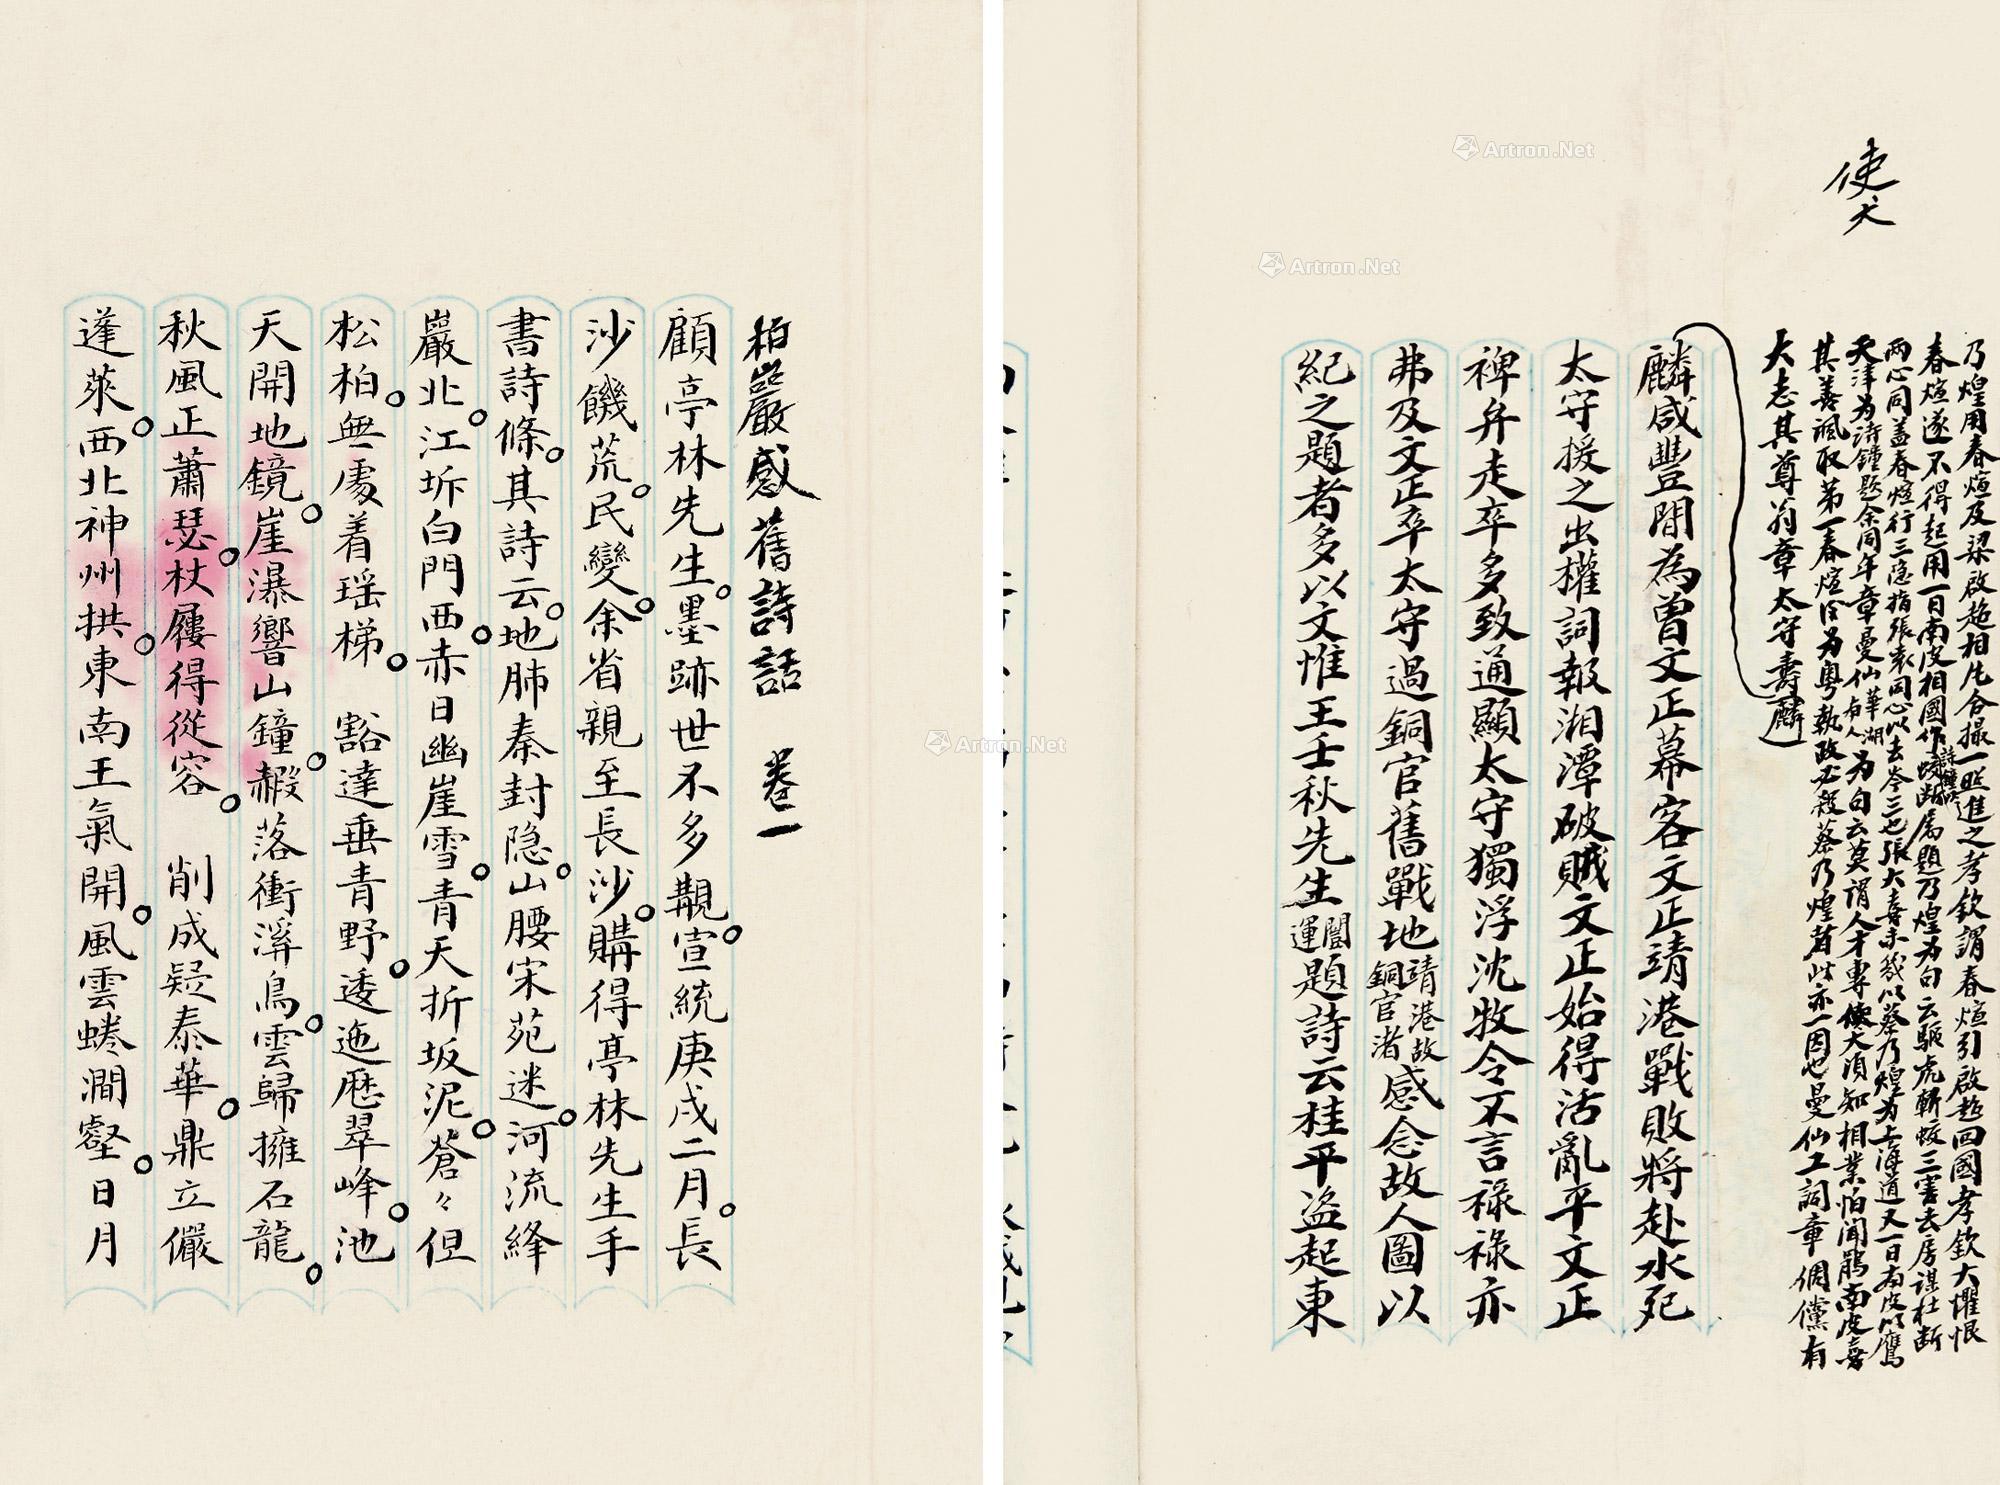 柏巖感舊詩話 卷一
顧亭林先生。墨跡世不多覯。宣統庚戌二月。長
沙饑荒。民變。余省親至長沙。購得亭林先生手
書詩條。其詩云。地肺秦封隐。山腰宋苑迷。河流絳
巖北。江坼白門西。赤日幽崖雪。青天折坂泥。蒼々但
松柏。無處着瑶梯。 豁達垂青野。逶迤歷翠峰。池
天開地鏡。崖瀑響山鐘。嘏落衝溪鳥。雲歸擁石龍。
秋風正蕭瑟。杖屨得從容。 削成疑泰華。鼎立儼
蓬萊。西北神州拱。東南王氣開。風雲蜷澗壑。日月
使犬
乃煌用春煊及梁啟超相片合撮一照進之孝欽謂春煊引啟超回國孝欽大懼恨
春煊遂不得起用一日南皮相國作詩鐘以蛟斷為題乃煌为句云驅虎斬蛟三害去房謀杜断
两心同盖春煊行三隐指張袁同心以去岑三也張大喜未幾以蔡乃煌为上海道又一日南皮以鷹
天津为詩鐘題余同年章曼仙華湖南人为句云莫谓人才專使犬須知相業怕聞鵑南皮喜
其善諷取第一春煊后为粤執政必殺蔡乃煌者此亦一因也曼仙工詞章倜儻有
大志其尊翁章太守壽麟
麟咸豐間為曾文正幕客文正靖港戰敗將赴水死
太守援之出權詞報湘潭破賊文正始得活亂平文正
裨弁走卒多致通顯太守獨浮沈牧令不言祿祿亦
弗及文正卒太守過銅官舊戰地靖港故銅官渚感念故人圖以
紀之題者多以文惟王壬秋先生闓運題詩云桂平盗起東
Artron.Net
Artron.Net
Artron.Net